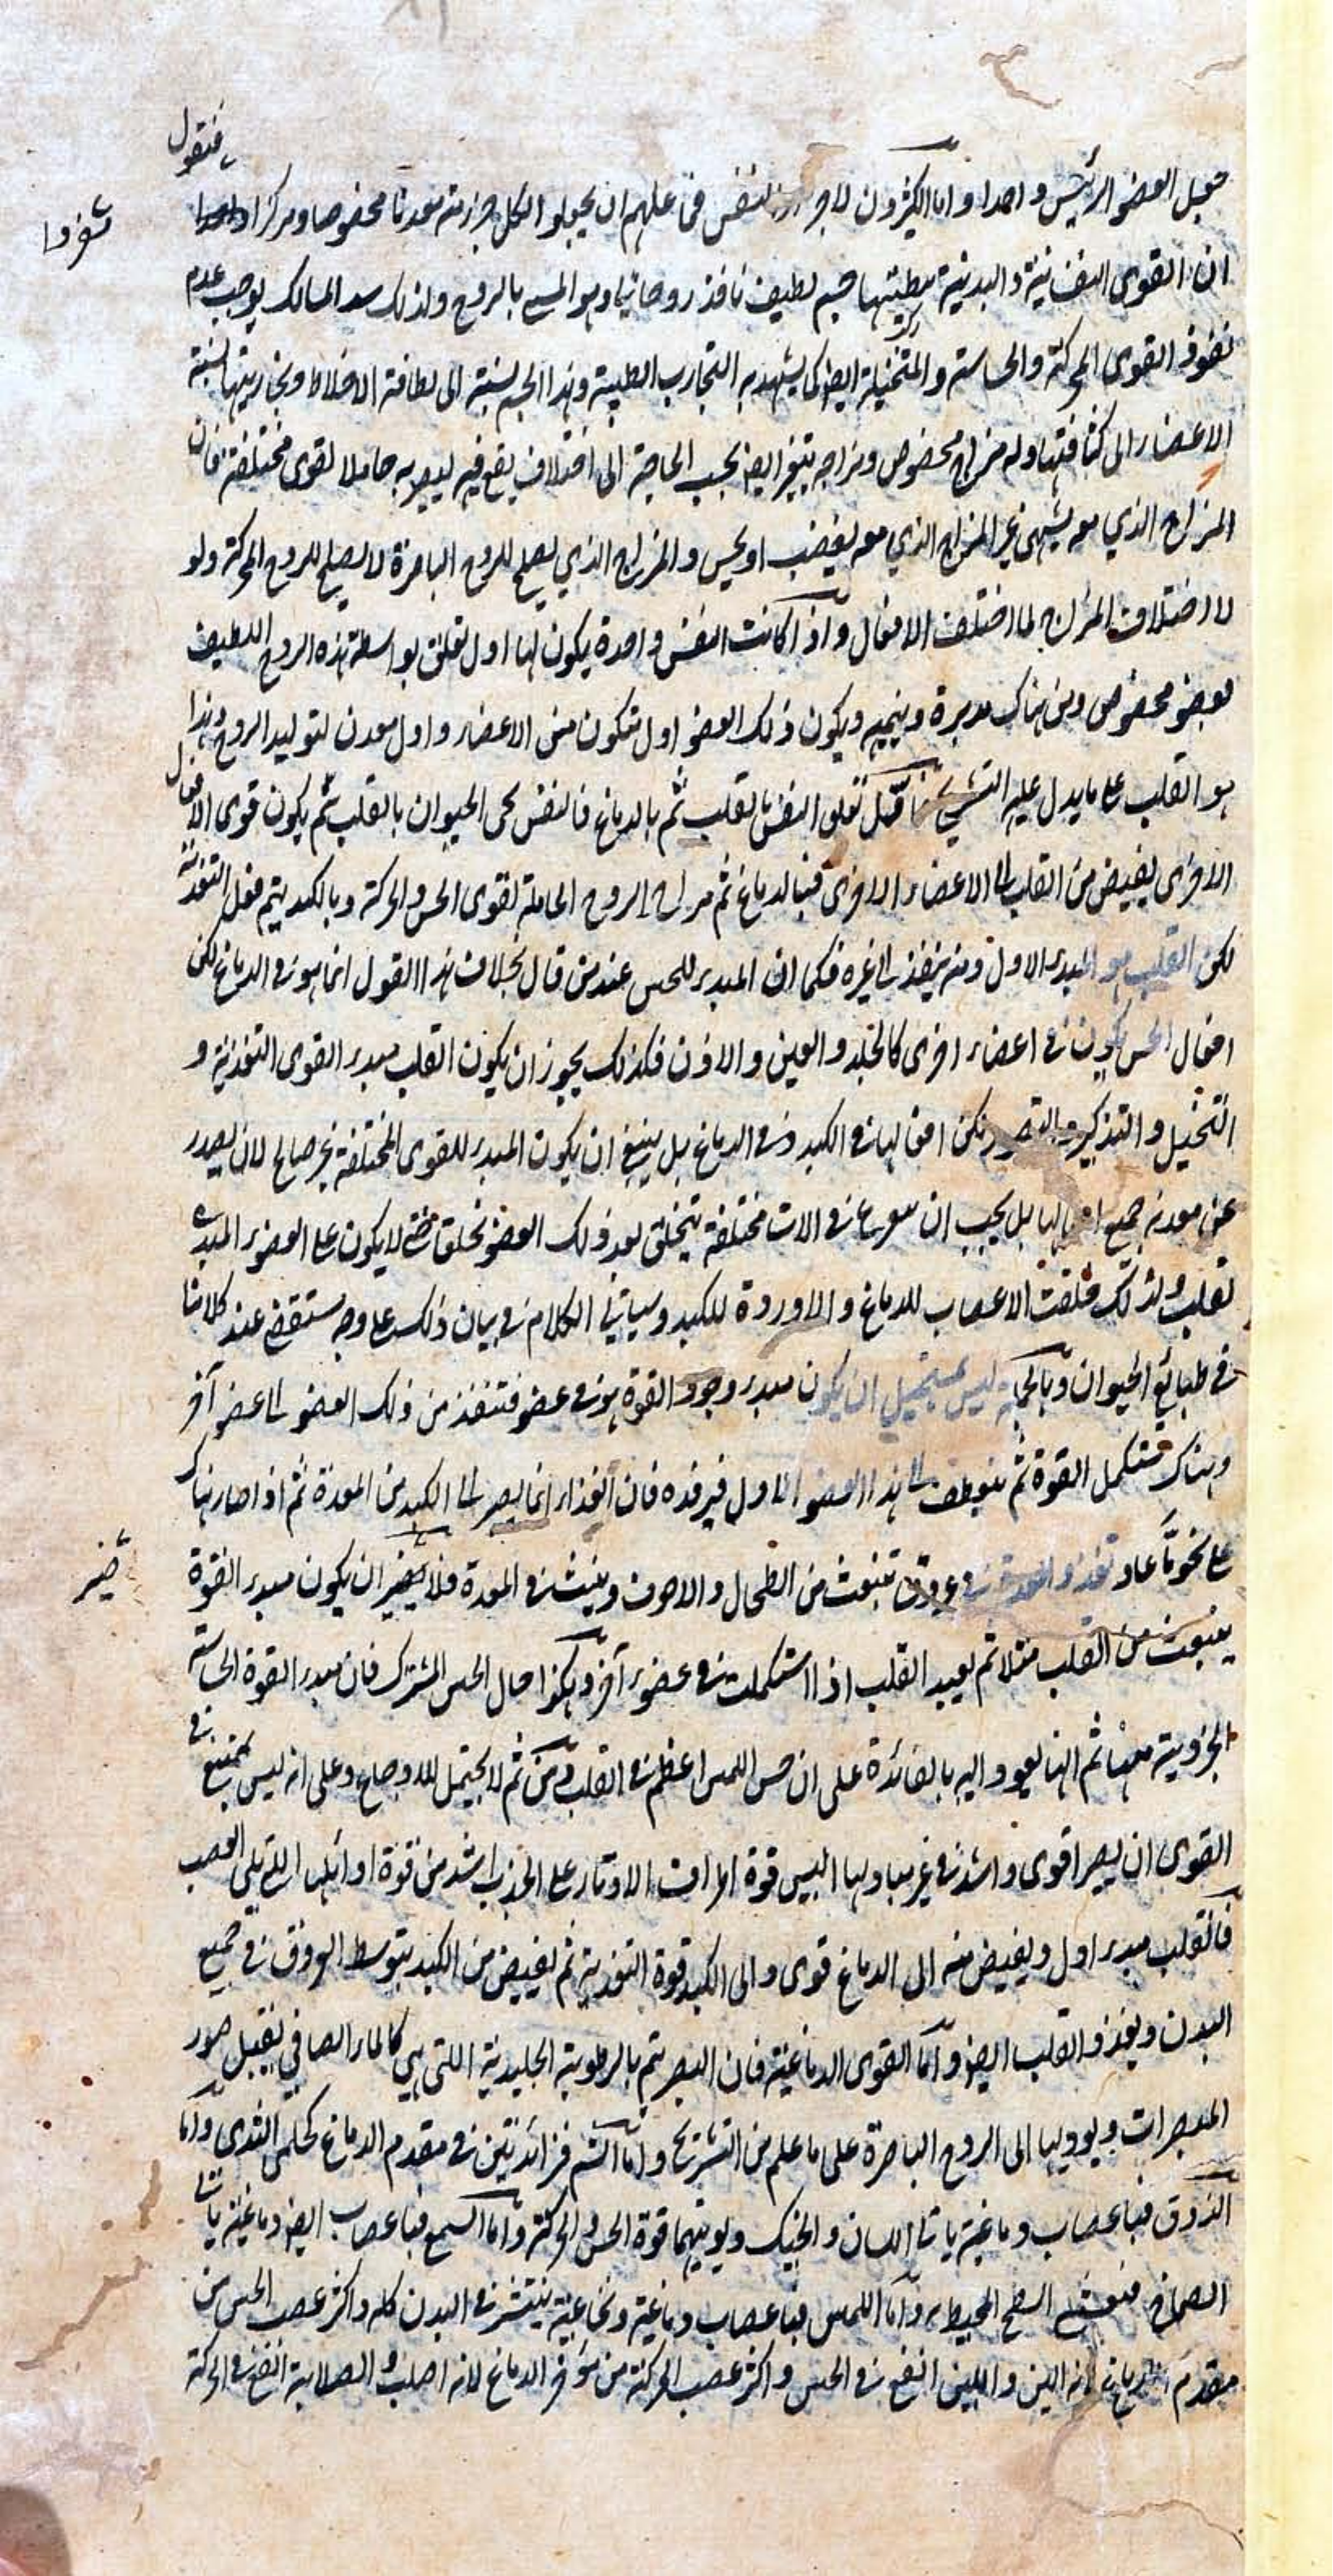 فنقول
جعل العضو الرئيس واحدا واما المكثرون لاجزاء النفس فمن علهم ان يجعلوا لكل جزء منه معدنا مخصوصا ومركزا
مفردا
ان القوى النفسانية والبدنية مطيتها جسم لطيف نافذ روحاني وهو المسمى بالروح ولذلك سد المسالك يوجب عدم
نفوذ القوى المحركة والحساسة والمتخيلة ايضا كما يشهد به التجارب الطبية وهذا الجسم نسبته الى لطافة الاخلاط وبخاريتها نسبة
الاعضاء الى كثافتها وله مزاج مخصوص ومزاجه يتغير ايضا بحسب الحاجة الى اختلاف يقع فيه ليصير به حاملا لقوى مختلفة فان
المزاج الذي معه يشتهى غير المزاج الذي معه يغضب او يحس والمزاج الذي يصلح للروح الباصرة لا يصلح للروح المحركة ولو
لا اختلاف المزاج لما اختلف الافعال واذا كانت النفس واحدة يكون لها اول تعلق بواسطة هذه الروح اللطيف
بعضو مخصوص ومن هناك مدبره وينميه ويكون ذلك العضو اول متكون من الاعضاء واول معدن لتوليد الروح وهذا
هو القلب على ما يدل عليه التشريح فاول تعلق النفس بالقلب ثم بالدماغ فالنفس تحى الحيوان بالقلب ثم يكون قوى الافعال
الاخرى يفيض من القلب الى الاعضاء الاخرى فبالدماغ يتم مزاج الروح الحاملة لقوى الحس والحركة وبالكبد يتم فعل التغذية
لكن القلب هو المبدء الاول ومنه ينفذ الى غيره فكما ان المبدء للحس عند من قال بخلاف هذا القول انما هو في الدماغ لكن
افعال الحس يكون في اعضاء اخرى كالجلد والعين والاذن فكذلك يجوز ان يكون القلب مبدء القوى التغذية و
التخيل والتذكير والتصور لكن افعالها في الكبد وفي الدماغ بل ينبغي ان يكون المبدء للقوى المختلفة غير صالح لان يصدر
عن معدنه جميع افعالها بل يجب ان يتفرع في الات مختلفة يتخلق بعد ذلك العضو تخلقا حتى لا يكون على العضو المبدء
ثقل ولذلك خلقت الاعصاب للدماغ والاوردة للكبد وسياتي الكلام في بيان ذلك على وجه مستقصى عند كلامنا
في طبايع الحيوان وبالجملة ليس بمستحيل ان يكون مبدء وجود القوة هو في عضو فتنفذ من ذلك العضو الى عضو آخر
وهناك تستكمل القوة ثم ينعطف الى هذا العضو الاول فيرفده فان الغذاء انما يصير الى الكبد من المعدة ثم اذا صار هناك
على نحو ما عاد فغذا المعدة في عروق تنبعث من الطحال والاجوف وينبث في المعدة فلا ضير ان يكون مبدء القوة
ضير
ينبعث من القلب مثلا ثم يعيد القلب اذا استكملت في عضو آخر وهكذا حال الحس المشترك فان مبدء القوة الحاسة
الجزوية منها ثم انها يعود اليه بالفائدة على ان حس اللمس اعظم في القلب ومن ثم لا يحتمل للاوجاع وعلى انه ليس بممتنع في
القوى ان يصير اقوى واشد في غير مباديها اليس قوة اطراف الاوتار على الجذب اشد من قوة اوائلها التي تلي العصب
فالقلب مبدء اول ويفيض منه الى الدماغ قوى والى الكبد قوة التغذية ثم يفيض من الكبد بتوسط العروق في جميع
البدن ويغذو القلب ايضا واما القوى الدماغية فان البصر يتم بالرطوبة الجليدية اللتى هي كالماء الصافي يقبل صور
المبصرات ويوديها الى الروح الباصرة على ما علم من التشريح واما الشم فزائدتين في مقدم الدماغ كحلمى الثدى واما
الذوق فباعصاب دماغية ياتى اللسان والحنك ويوتيهما قوة الحس والحركة واما السمع فباعصاب ايضا دماغية ياتى
الصماخ فيغشى السطح المحيط به واما اللمس فباعصاب دماغية ونخاعية ينتشر في البدن كله واكثر عصب الحس من
مقدم الدماغ لانه الين واللين انفع في الحس واكثر عصب الحركة من موخر الدماغ لانه اصلب والصلابة انفع في الحركة